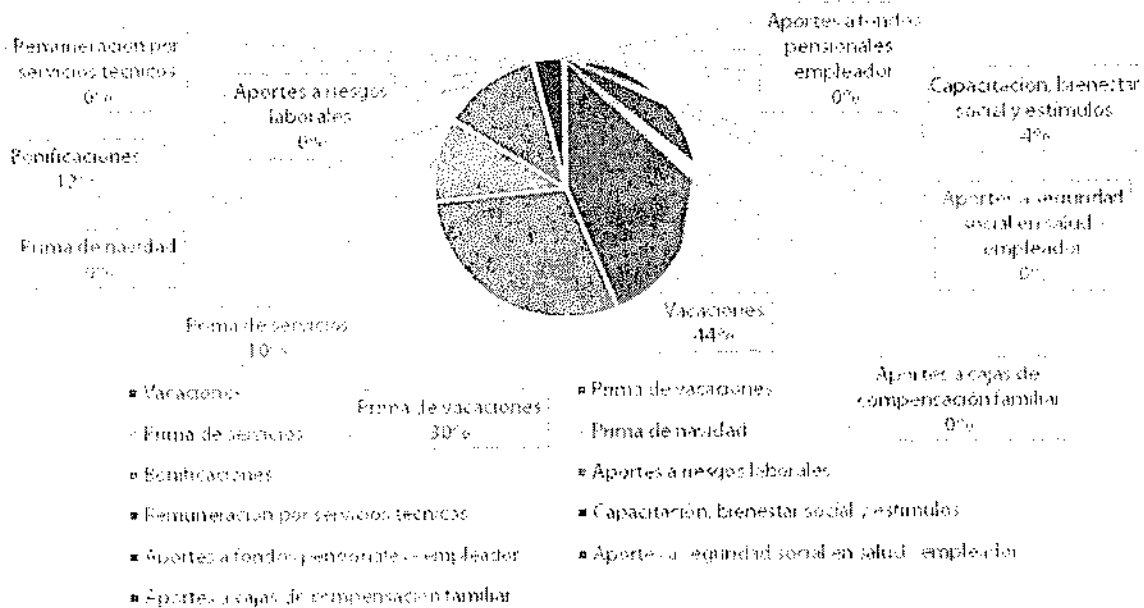 Remuneración por
servicios técnicos
0%
Aportes a riesgos
laborales
0%
Aportes a fondos
pensionales
empleador
0%
Capacitación, bienestar
social y estímulos
4%
Bonificaciones
12%
Aportes a seguridad
social en salud -
empleador
0%
Prima de navidad
0%
Prima de servicios
10%
Vacaciones
44%
Aportes a cajas de
compensación familiar
0%
Prima de vacaciones
30%
Vacaciones
Prima de vacaciones
Prima de servicios
Prima de navidad
Bonificaciones
Aportes a riesgos laborales
Remuneración por servicios técnicos
Capacitación, bienestar social y estímulos
Aportes a fondos pensionales - empleador
Aportes a seguridad social en salud - empleador
Aportes a cajas de compensación familiar